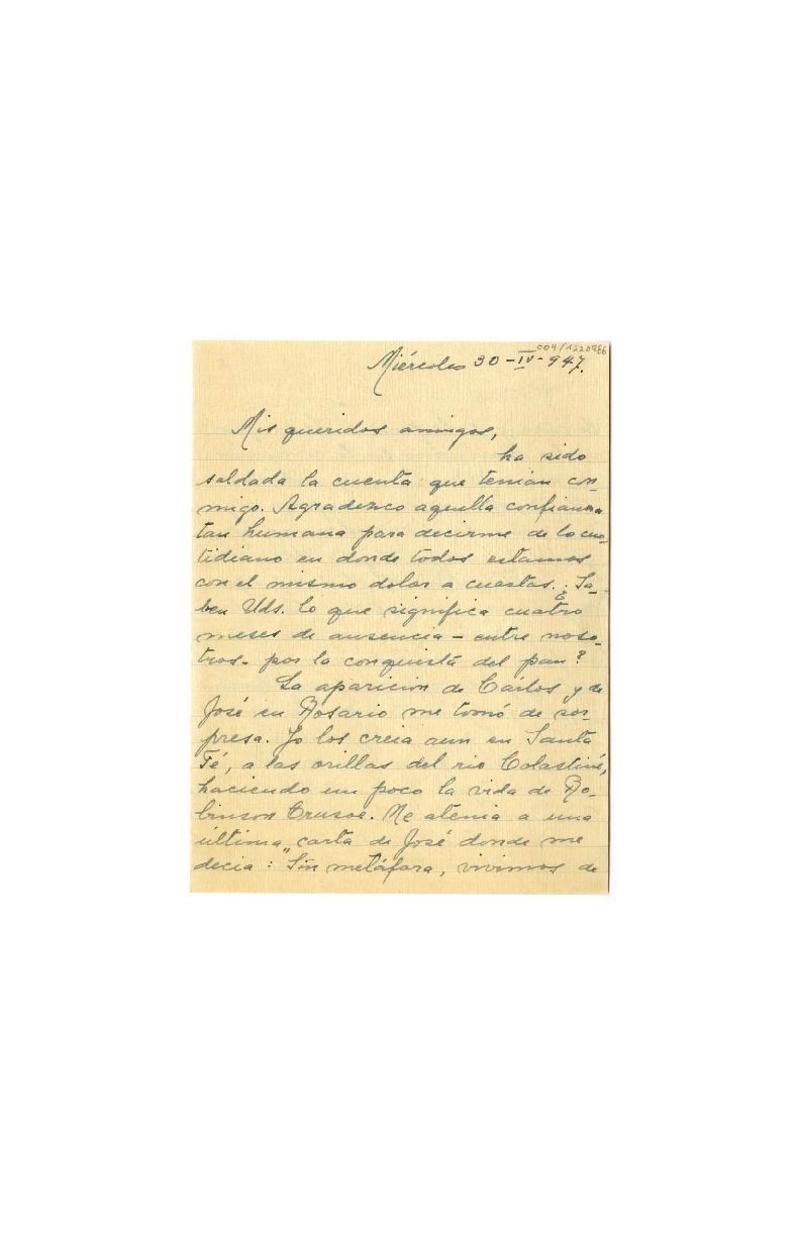 C04/1220986
Miércoles 30-IV-947.
Mis queridos amigos,
ha sido
saldada la cuenta que tenian con-
migo. Agradezco aquella confianza
tan humana para decirme de lo cuo-
tidiano en donde todos estamos
con el mismo dolor a cuestas. ¿Sa-
ben Uds. lo que significa cuatro
meses de ausencia - entre noso-
tros - por la conquista del pan?
La aparicion de Cárlos y de
José en Rosario me tomó de sor-
presa. Yo los creia aun en Santa
Fé, a las orillas del rio Colastiné,
haciendo un poco la vida de Ro-
binson Crusoe. Me atenia a una
última carta de José donde me
decia: "Sin metáfora, vivimos de